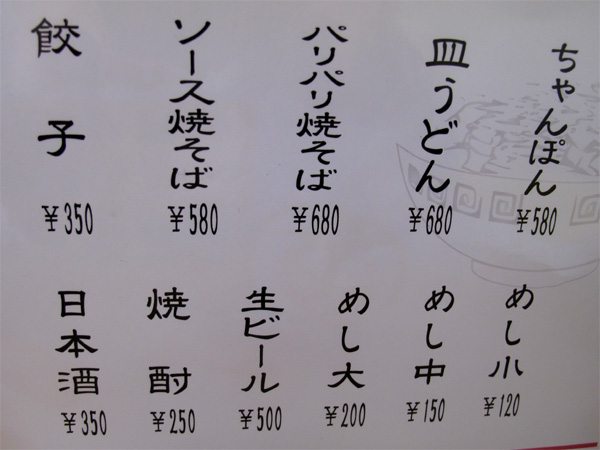 ちゃんぽん
￥580
皿うどん
￥680
パリパリ焼そば
￥680
ソース焼そば
￥580
餃子
￥350
めし小
￥120
めし中
￥150
めし大
￥200
生ビール
￥500
焼酎
￥250
日本酒
￥350